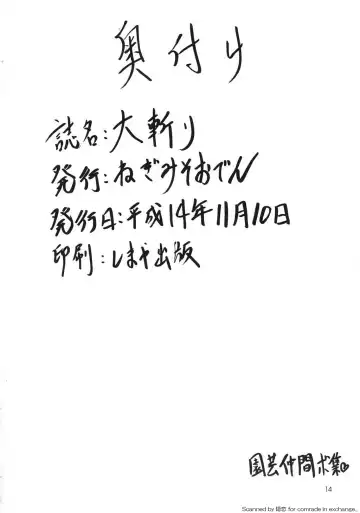 奥付け
誌名:大斬り
発行:ねぎみそおでん
発行日:平成14年11月10日
印刷:しまや出版
園芸仲間求集
14
Scanned by 錯恋 for comrade in exchange.